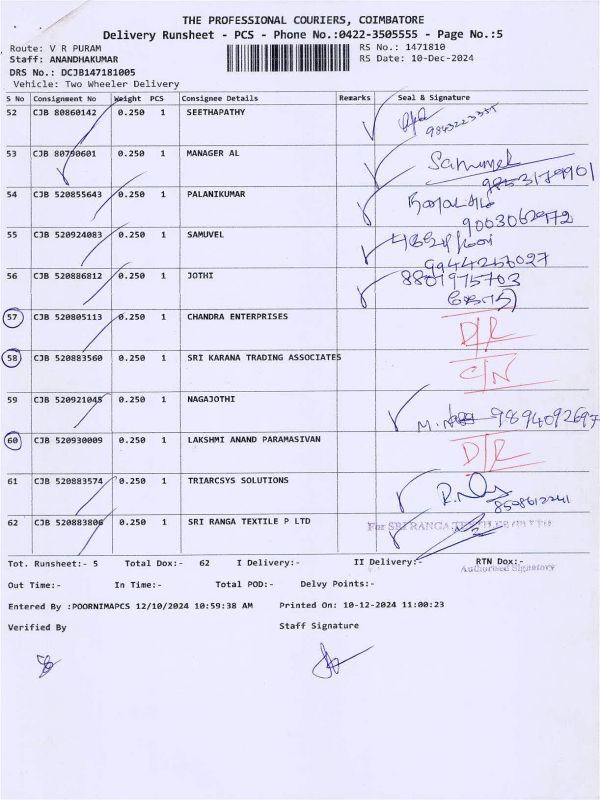 THE PROFESSIONAL COURIERS, COIMBATORE
Delivery Runsheet - PCS - Phone No.:0422-3505555 - Page No.:5
Route: V R PURAM
RS No.: 1471810
Staff: ANANDHAKUMAR
RS Date: 10-Dec-2024
DRS No.: DCJB147181005
Vehicle: Two Wheeler Delivery
S No Consignment No Weight PCS Consignee Details Remarks Seal & Signature
52 CJB 80860142 0.250 1 SEETHAPATHY
53 CJB 80790601 0.250 1 MANAGER AL
54 CJB 520855643 0.250 1 PALANIKUMAR
9003062972
55 CJB 520924083 0.250 1 SAMUVEL
9944256027
56 CJB 520886812 0.250 1 JOTHI 8801975703
57 CJB 520805113 0.250 1 CHANDRA ENTERPRISES D/R
58 CJB 520883560 0.250 1 SRI KARANA TRADING ASSOCIATES C/N
59 CJB 520921045 0.250 1 NAGAJOTHI 9894092697
60 CJB 520930009 0.250 1 LAKSHMI ANAND PARAMASIVAN D/R
61 CJB 520883574 0.250 1 TRIARCSYS SOLUTIONS
8508612241
62 CJB 520883806 0.250 1 SRI RANGA TEXTILE P LTD For SRI RANGA TEXTILE (P) LTD
Tot. Runsheet:- 5 Total Dox:- 62 I Delivery:- II Delivery:- RTN Dox:-
Authorised Signatory
Out Time:- In Time:- Total POD:- Delvy Points:-
Entered By :POORNIMAPCS 12/10/2024 10:59:38 AM Printed On: 10-12-2024 11:00:23
Verified By Staff Signature